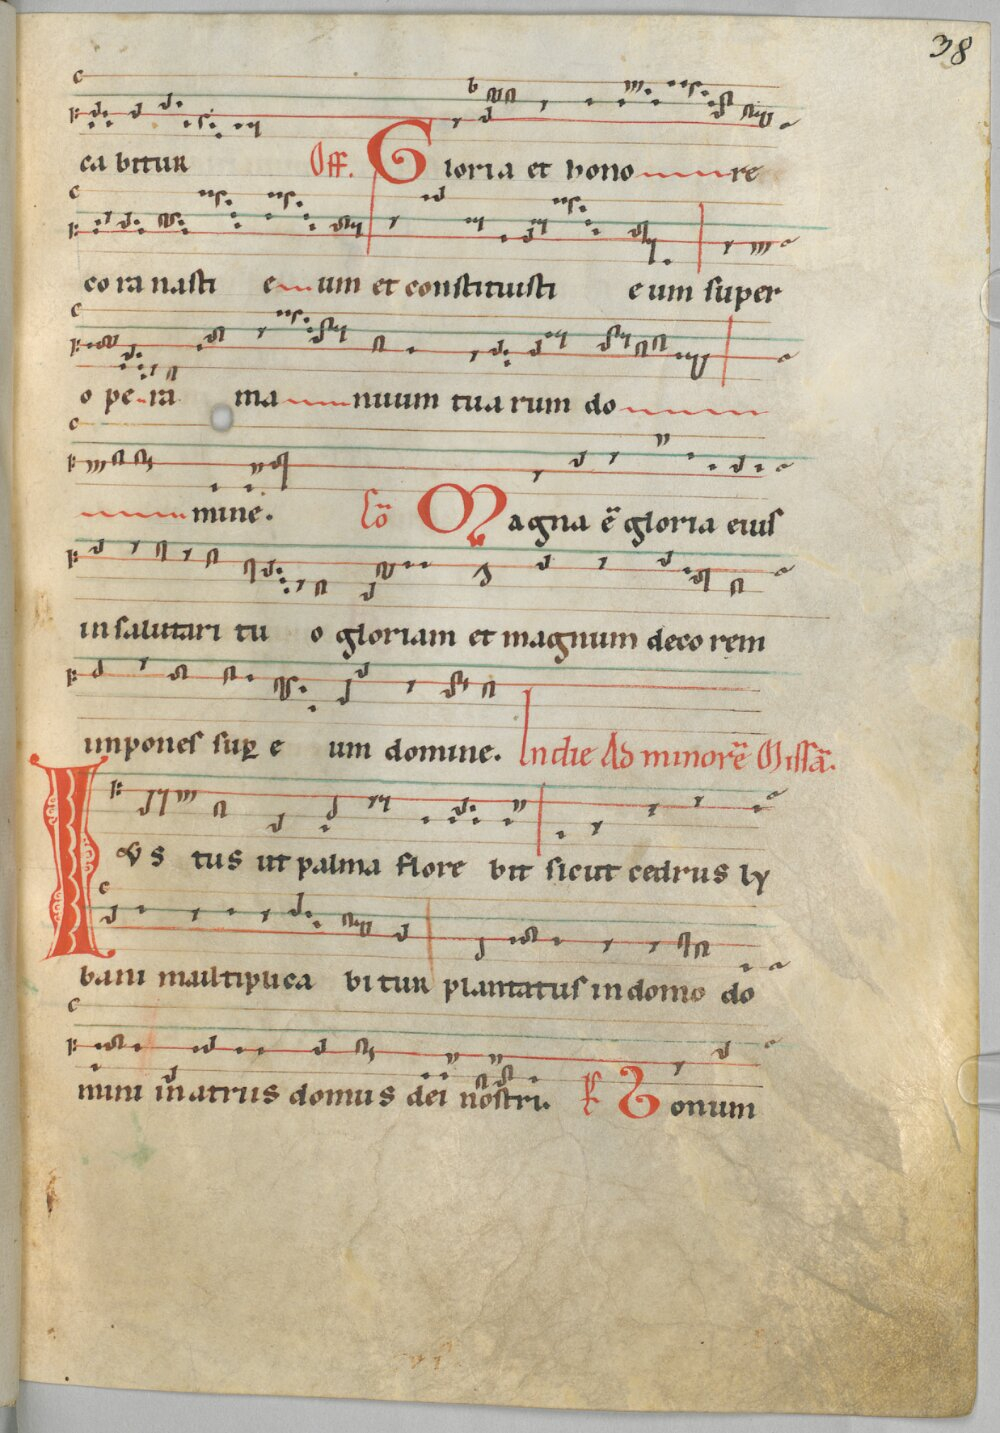 38
ca bitur Off. Gloria et hono re
co ra nasti e um et constituisti e um super
o pe ra ma nuum tua rum do
mine. Co Magna ē gloria eius
in salutari tu o gloriam et magnum deco rem
impones sup e um domine. In die Ad minorē Missā.
Ius tus ut palma flore bit sicut cedrus ly
bani multiplica bi tur plantatus in domo do
mini in atriis domus dei nostri. Bonum